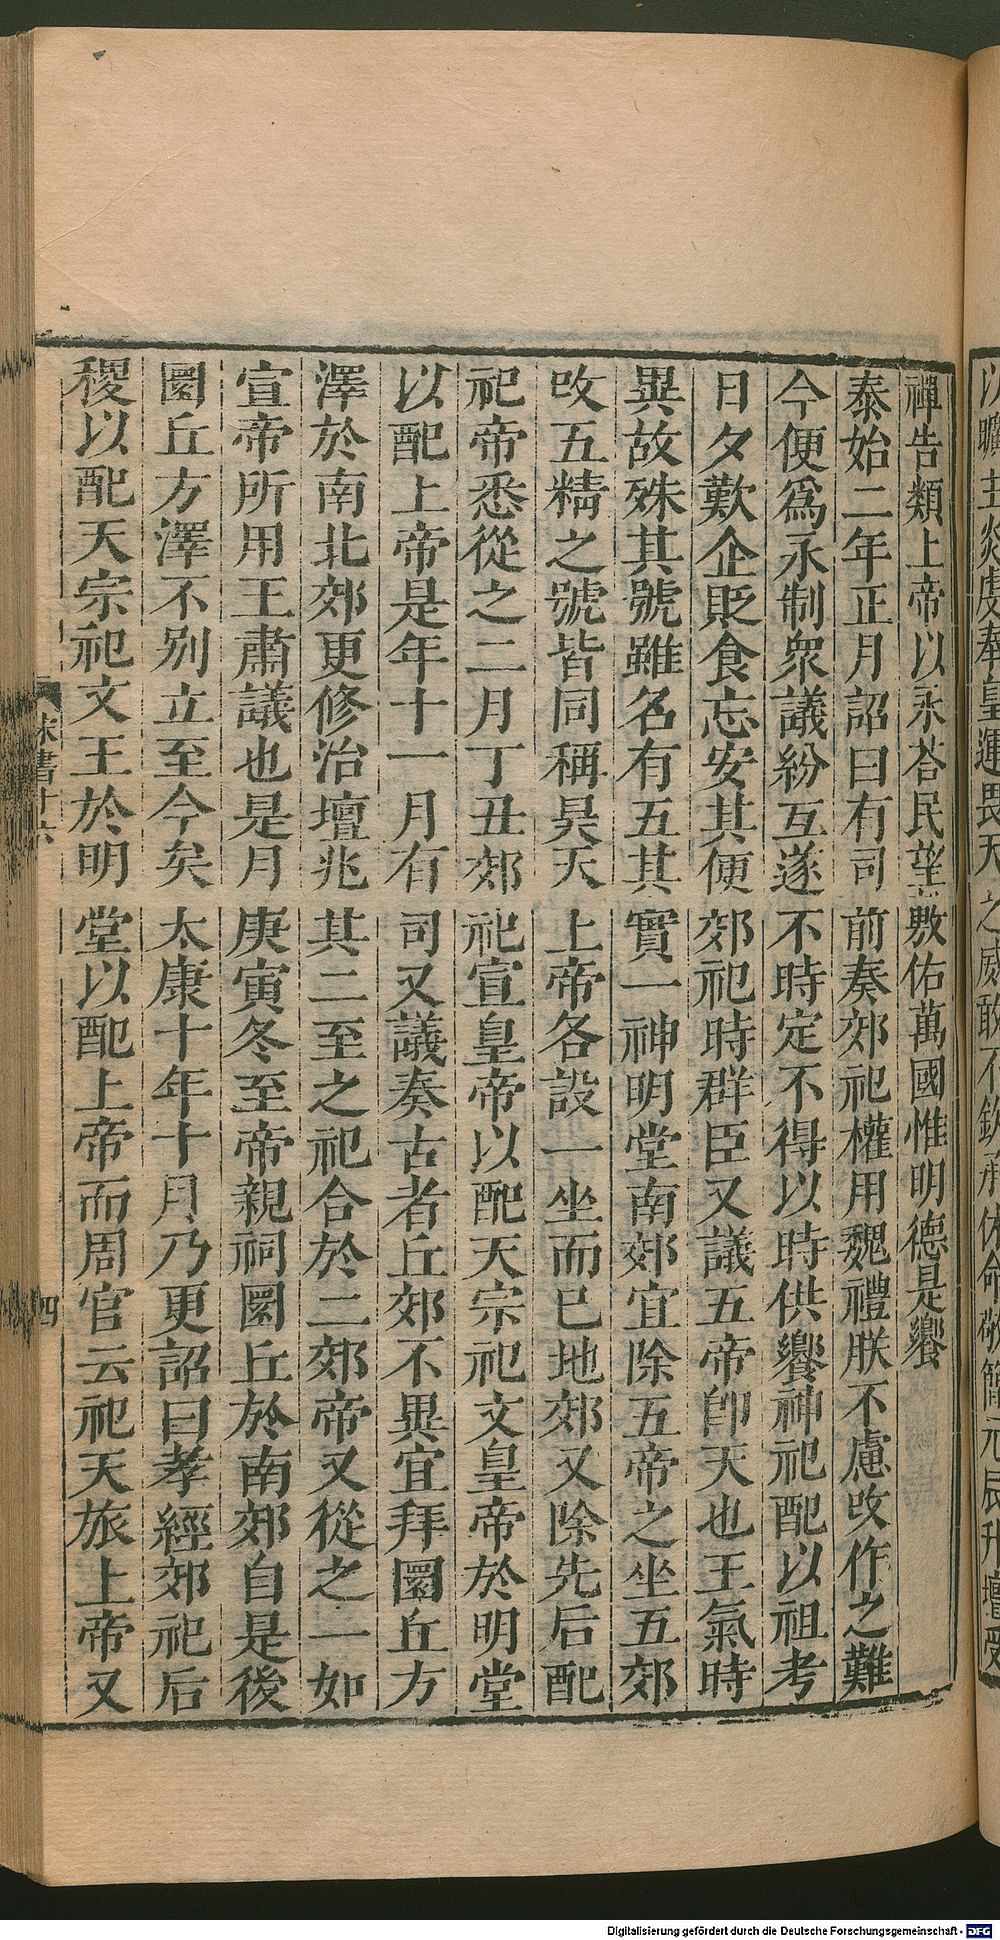 以曊土炎虔奉皇運畏天之威敢不欽承休命敬簡元辰升壇受
禪告類上帝以永荅民望敷佑萬國惟明德是饗
泰始二年正月詔曰有司前奏郊祀權用魏禮朕不慮攺作之難
今便爲永制衆議紛互遂不時定不得以時供饗神祀配以祖考
日夕歎企貶食忘安其便郊祀時群臣又議五帝卽天也王氣時
異故殊其號雖名有五其實一神明堂南郊宜除五帝之坐五郊
攺五精之號皆同稱昊天上帝各設一坐而已地郊又除先后配
祀帝悉從之二月丁丑郊祀宣皇帝以配天宗祀文皇帝於明堂
以配上帝是年十一月有司又議奏古者丘郊不異宜拜圜丘方
澤於南北郊更修治壇兆其二至之祀合於二郊帝又從之一如
宣帝所用王肅議也是月庚寅冬至帝親祠圜丘於南郊自是後
圜丘方澤不别立至今矣太康十年十月乃更詔曰孝經郊祀后
稷以配天宗祀文王於明堂以配上帝而周官云祀天旅上帝又
宋書十六
四
Digitalisierung gefördert durch die Deutsche Forschungsgemeinschaft - DFG